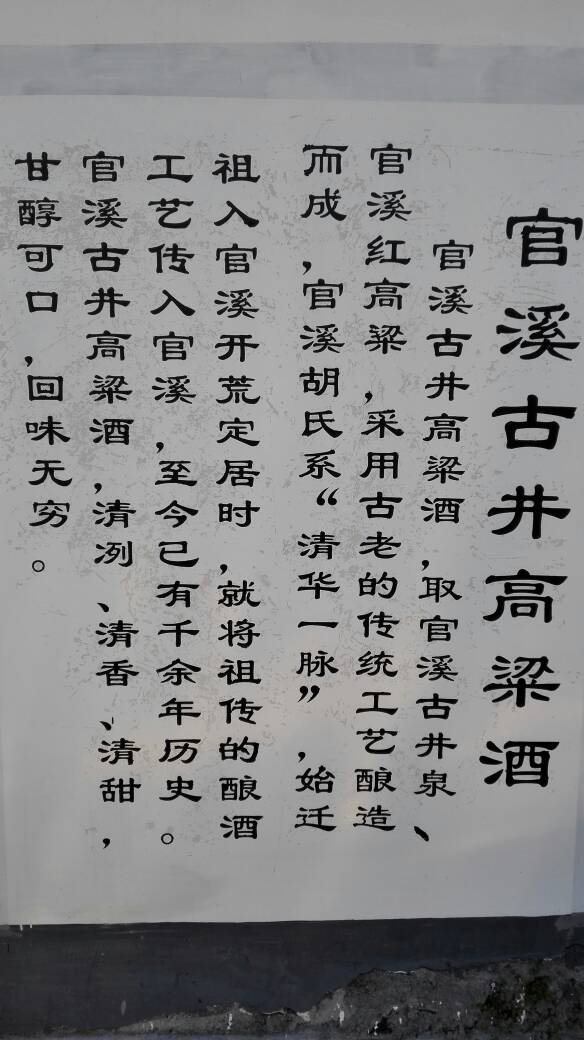 官溪古井高粱酒
官溪古井高粱酒，取官溪古井泉、
官溪红高粱，采用古老的传统工艺酿造
而成，官溪胡氏系“清华一脉”，始迁
祖入官溪开荒定居时，就将祖传的酿酒
工艺传入官溪，至今已有千余年历史。
官溪古井高粱酒，清冽、清香、清甜，
甘醇可口，回味无穷。